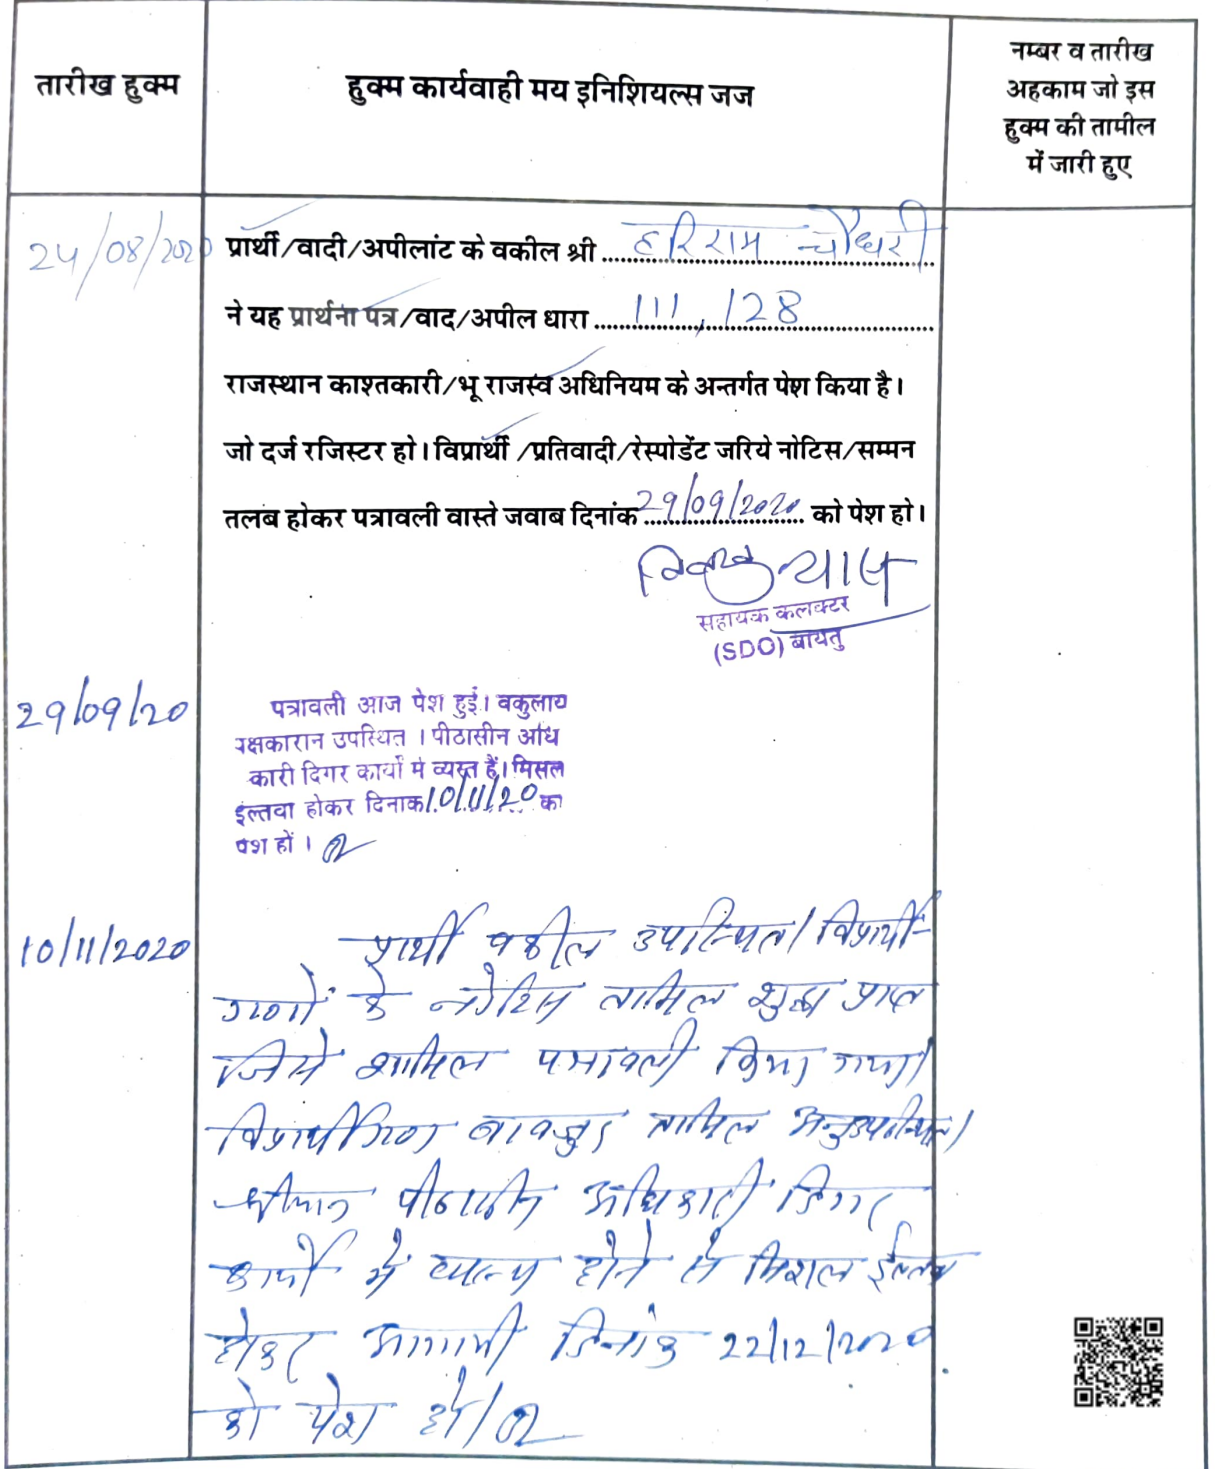 तारीख हुक्म
हुक्म कार्यवाही मय इनिशियल्स जज
नम्बर व तारीख
अहकाम जो इस
हुक्म की तामील
में जारी हुए
24/08/2020
प्रार्थी/वादी/अपीलांट के वकील श्री हरिराम चौधरी
ने यह प्रार्थना पत्र/वाद/अपील धारा 111, 128
राजस्थान काश्तकारी/भू राजस्व अधिनियम के अन्तर्गत पेश किया है।
जो दर्ज रजिस्टर हो। विप्रार्थी /प्रतिवादी/रेस्पोडेंट जरिये नोटिस/सम्मन
तलब होकर पत्रावली वास्ते जवाब दिनांक 29/09/2020 को पेश हो।
सहायक कलक्टर
(SDO) बायतु
29/09/20
पत्रावली आज पेश हुई। वकुलाय
पक्षकारान उपस्थित । पीठासीन अधि
कारी दिगर कार्यों में व्यस्त हैं। मिसल
ईल्तवा होकर दिनांक 10/11/20 को
पेश हों ।
10/11/2020
प्रार्थी वकील उपस्थित। विप्रार्थी-
गणों के नोटिस तामिल शुदा प्राप्त
जिसे शामिल पत्रावली किया गया।
विप्रार्थीगण बावजुद तामिल अनुउपस्थित।
श्रीमान पीठासीन अधिकारी दिगर
कार्यों में व्यस्त होने से मिशल ईल्तवा
होकर आगामी दिनांक 22/12/2020
को पेश हो।